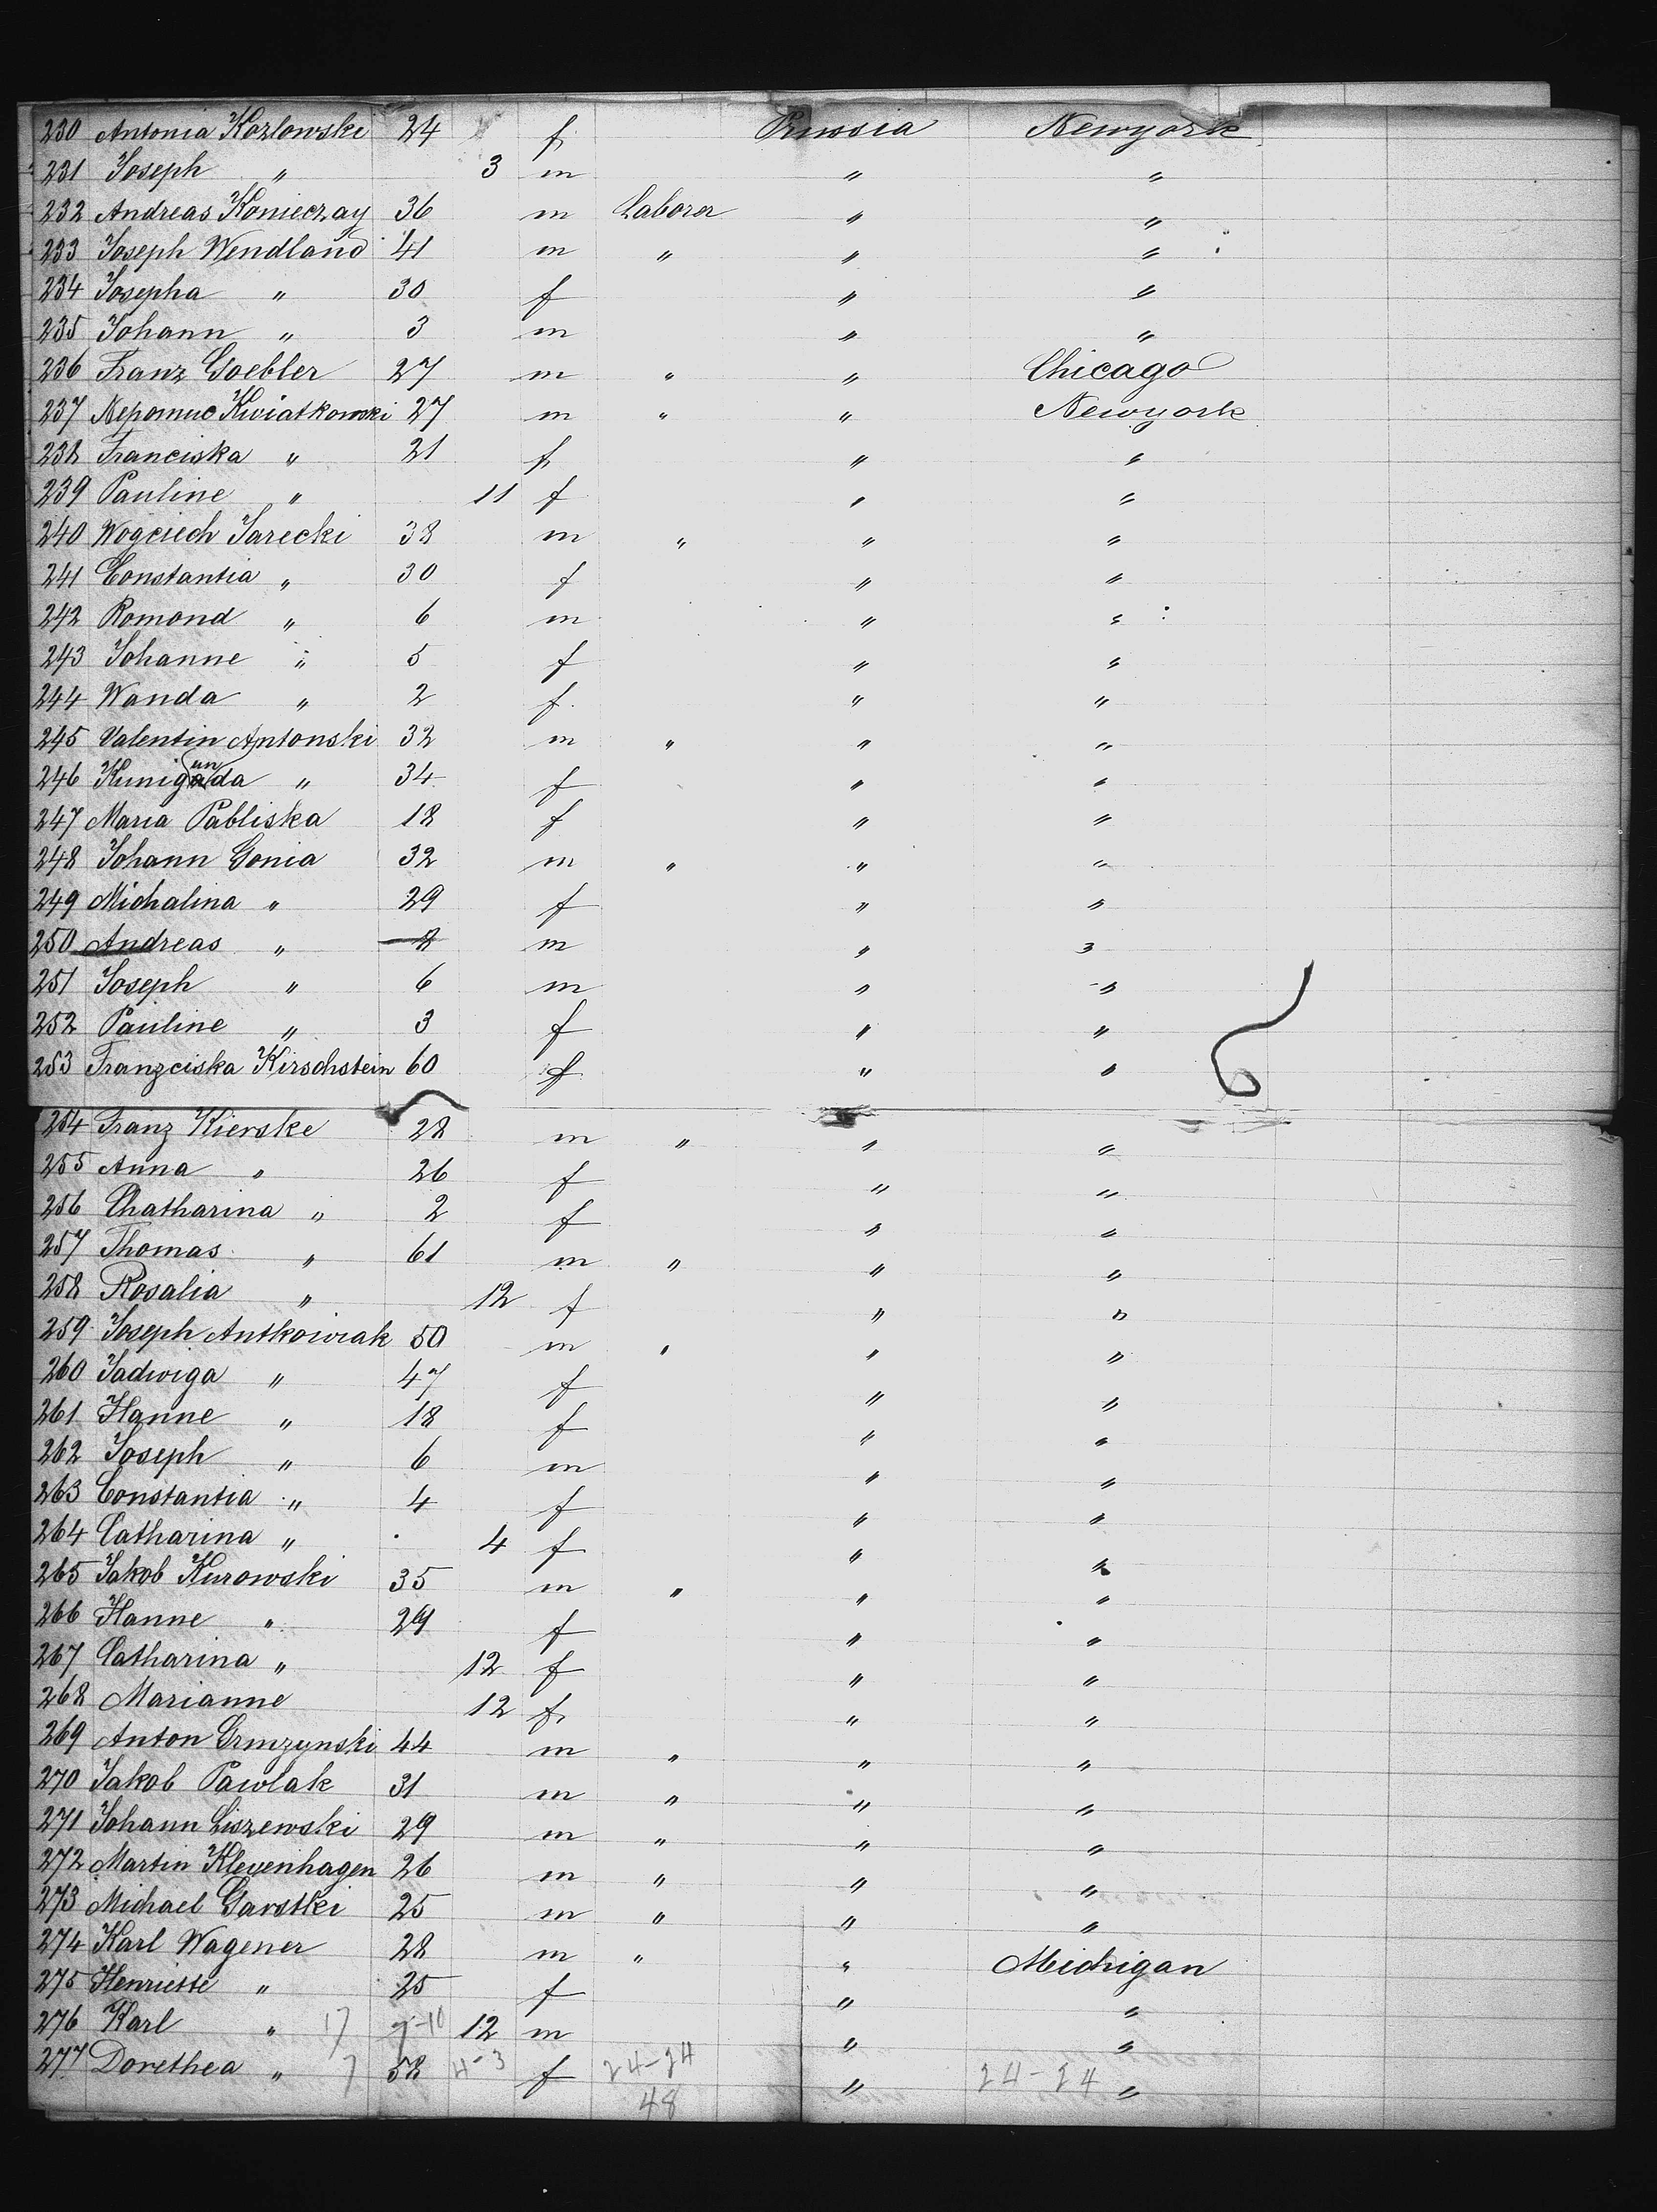 230 Antonia Kozlowski 24 f Prussia Newyork
231 Joseph " 3 m " "
232 Andreas Konieczay 36 m Laborer " "
233 Joseph Wendland 41 m " " "
234 Josepha " 30 f " "
235 Johann " 3 m " "
236 Franz Goebler 27 m " " Chicago
237 Nepomuc Kwiatkowski 27 m " " Newyork
238 Franciska " 21 f " "
239 Pauline " 11 f " "
240 Wogciech Jarecki 38 m " " "
241 Constantia " 30 f " "
242 Romond " 6 m " "
243 Johanne " 5 f " "
244 Wanda " 2 f " "
245 Valentin Antonski 32 m " " "
246 Kunigunda " 34 f " "
247 Maria Pabliska 18 f " "
248 Johann Gonia 32 m " " "
249 Michalina " 29 f " "
250 Andreas " 8 m " "
251 Joseph " 6 m " "
252 Pauline " 3 f " "
253 Franzciska Kirschstein 60 f " "
254 Franz Kierske 28 m " " "
255 Anna " 26 f " "
256 Chatharina " 2 f " "
257 Thomas " 61 m " " "
258 Rosalia " 12 f " "
259 Joseph Antkowiak 50 m " " "
260 Jadwiga " 47 f " "
261 Hanne " 18 f " "
262 Joseph " 6 m " "
263 Constantia " 4 f " "
264 Catharina " 4 f " "
265 Jakob Kurowski 35 m " " "
266 Hanne " 29 f " "
267 Catharina " 12 f " "
268 Marianne 12 f " "
269 Anton Grmzynski 44 m " " "
270 Jakob Pawlak 31 m " " "
271 Johann Liszewski 29 m " " "
272 Martin Klevenhagen 26 m " " "
273 Michael Garstki 25 m " " "
274 Karl Wagener 28 m " " Michigan
275 Henriette " 25 f " "
276 Karl " 17 7-10 12 m " "
277 Dorethea " 7 58 4-3 f 24-24 " 24-24 "
48